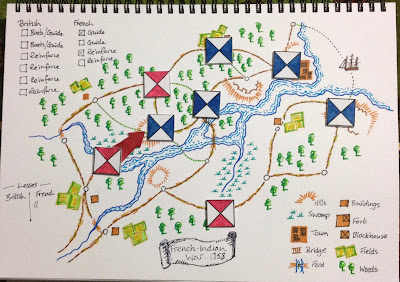 British
Boats/Guide
Boats/Guide
Reinforce
Reinforce
Reinforce
Reinforce
French
Guide
Guide
Reinforce
Reinforce
Losses
British French
II
French-Indian
War. 1758
Hills
Swamp
Town
Bridge
Ford
Buildings
Fort
Blockhouse
Fields
Woods